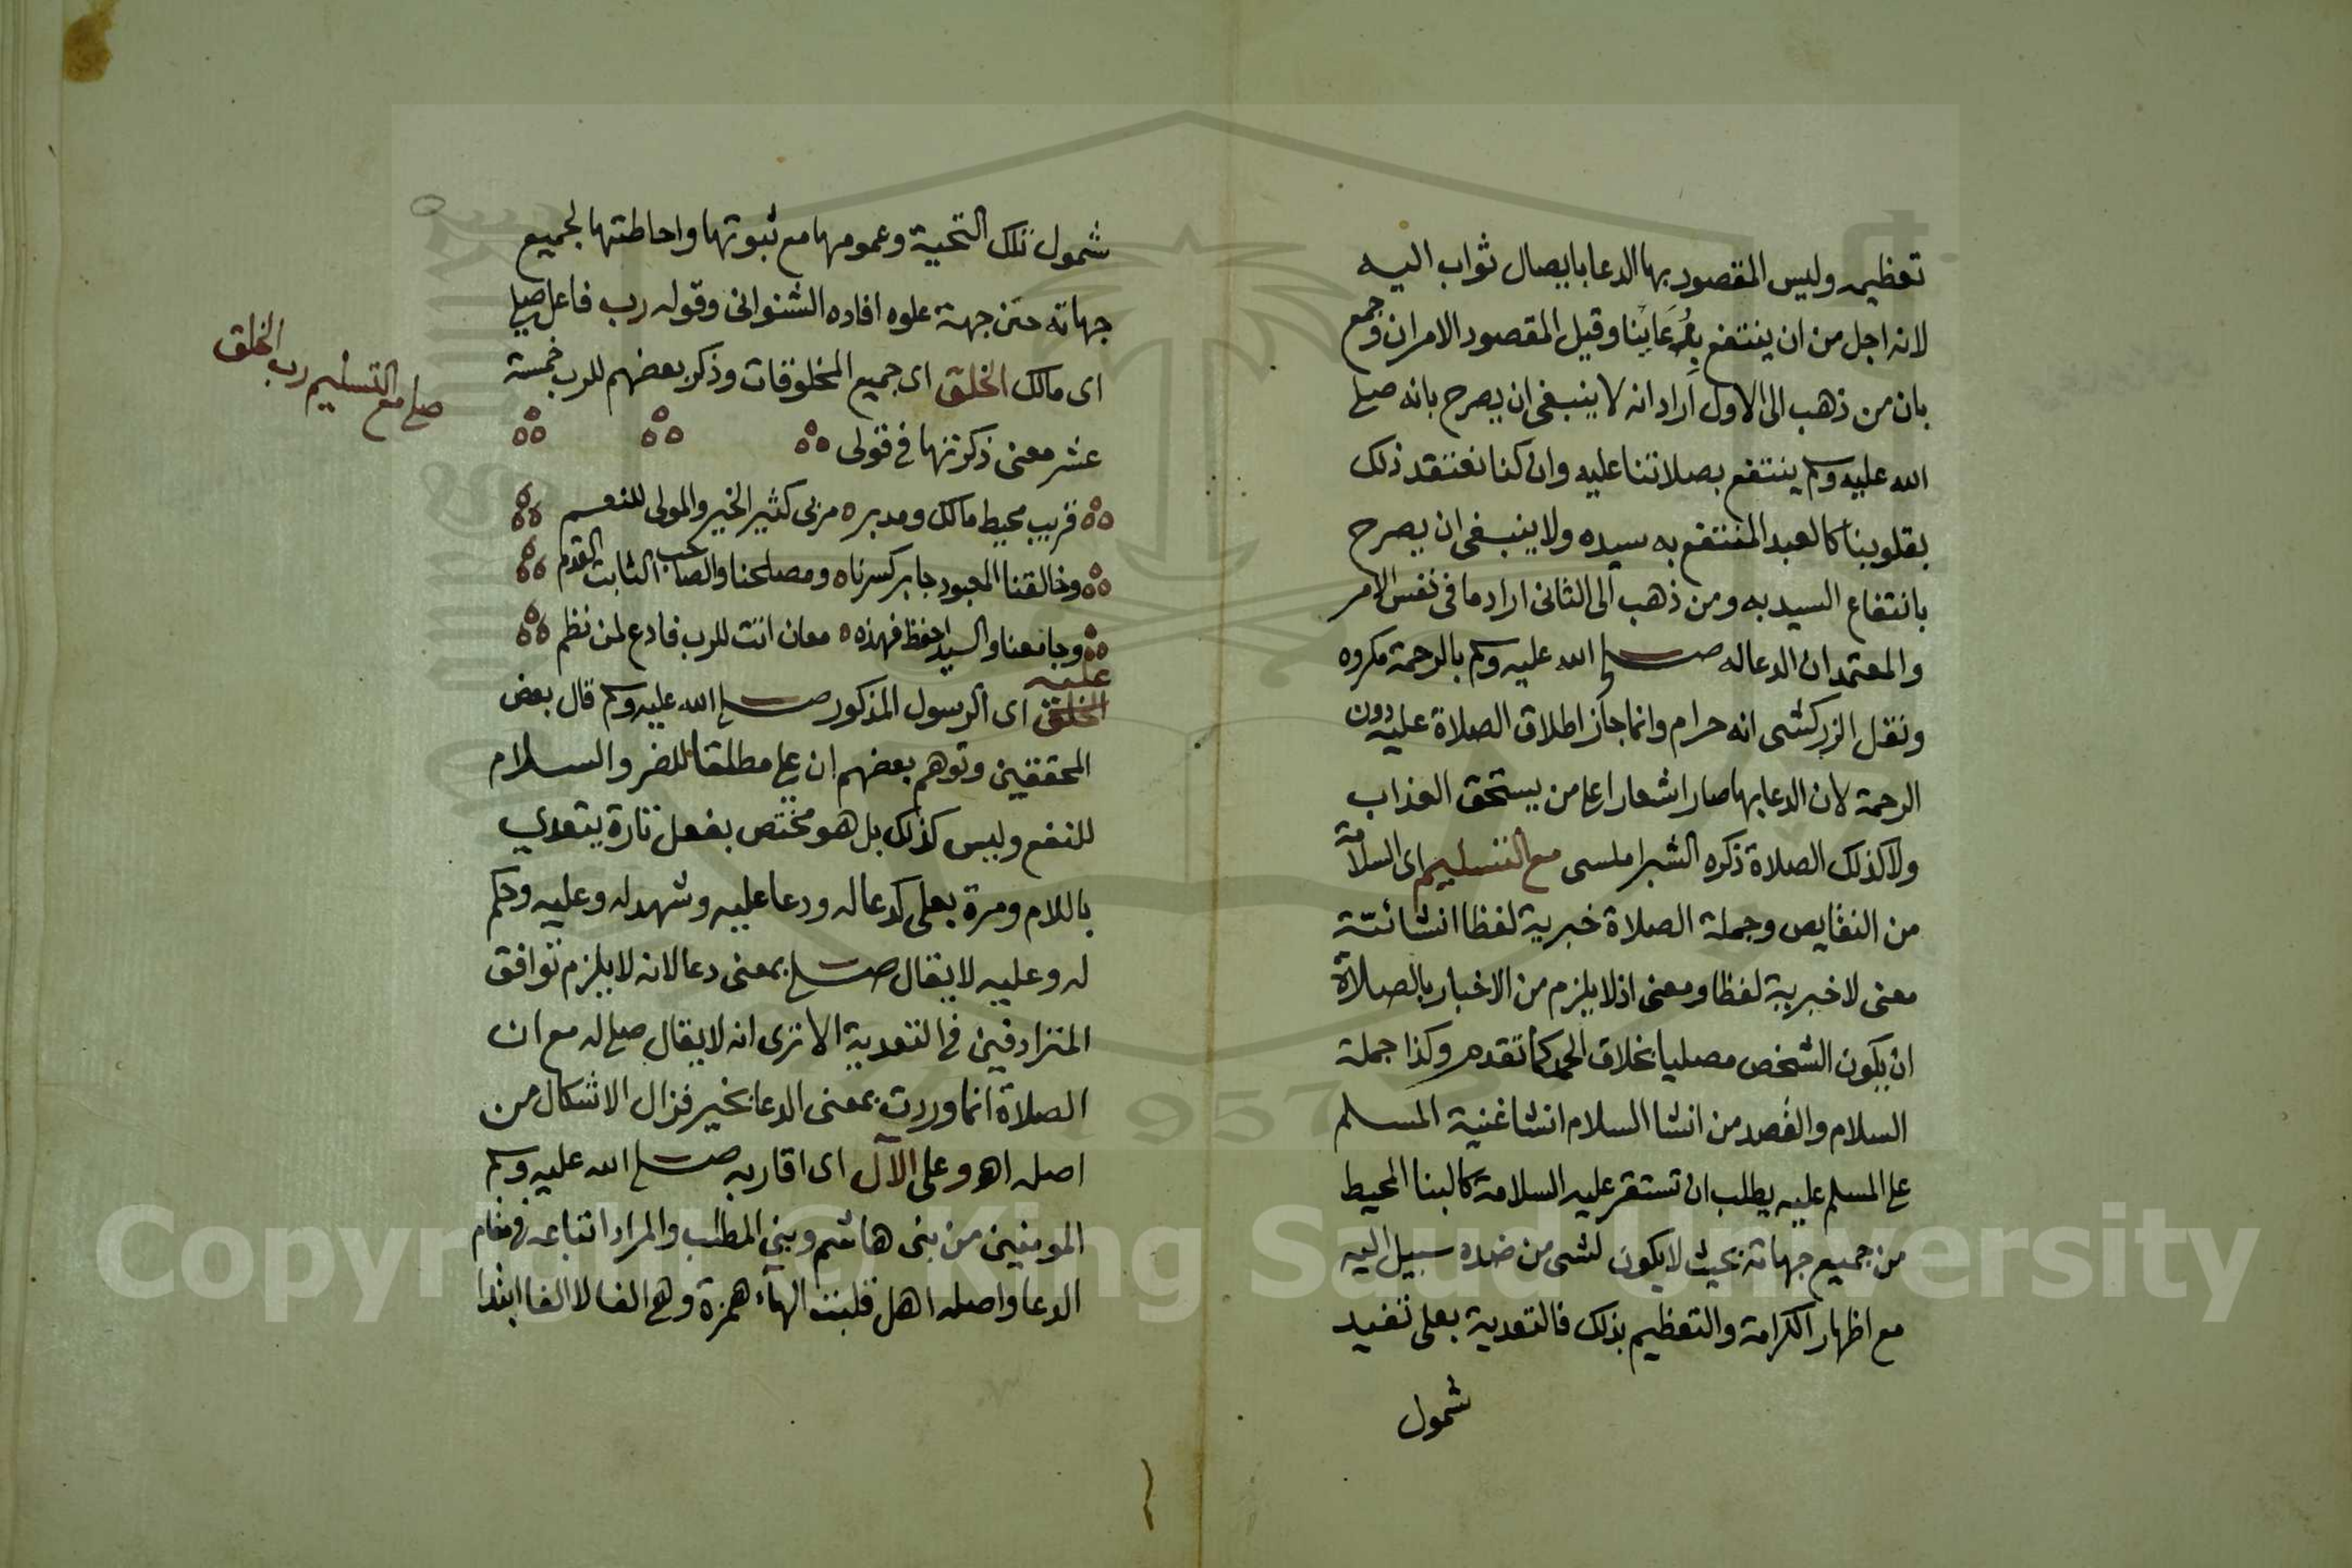 تعظيمه وليس المقصود بها الدعا بايصال ثواب اليه
لانه اجل من ان ينتفع بدعاينا وقيل المقصود الامران وجمع
بان من ذهب الى الاول اراد انه لا ينبغى ان يصرح بانه صلى
الله عليه وسلم ينتفع بصلاتنا عليه وان كنا نعتقد ذلك
بقلوبنا كالعبد المنتفع به سيده ولا ينبغى ان يصرح
بانتفاع السيد به ومن ذهب الى الثانى اراد ما فى نفس الامر
والمعتمد ان الدعا له صلى الله عليه وسلم بالرحمة مكروه
ونقل الزركشى انه حرام وانما جاز اطلاق الصلاة عليه دون
الرحمة لان الدعا بها صار اشعارا على من يستحق العذاب
ولا كذلك الصلاة ذكره الشبراملسى مع التسليم اى السلامة
من النقايص وجملة الصلاة خبرية لفظا انشائية
معنى لا خبرية لفظا ومعنى اذ لا يلزم من الاخبار بالصلاة
ان يكون الشخص مصليا بخلاف الحمد كما تقدم وكذا جملة
السلام والقصد من انشا السلام انشا المسلم
على المسلم عليه يطلب ان تستقر عليه السلامة كالبنا المحيط
من جميع جهاته بحيث لا يكون لشى من ضده سبيل اليه
مع اظهار الكرامة والتعظيم بذلك فالتعدية بعلى تفيد
شمول
شمول تلك التحية وعمومها مع ثبوتها واحاطتها لجميع
جهاته حتى جهة علوه افاده الشنوانى وقوله رب فاعل صلى
اى مالك الخلق اى جميع المخلوقات وذكر بعضهم للرب خمسة
عشر معنى ذكرتها فى قولى
قريب محيط مالك ومدبر مربى كثير الخير والمولى للنعم
وخالقنا المعبود جابر كسرنا ومصلحنا والصاحب الثابت القدم
وجامعنا والسيد احفظ فهذه معان اتت للرب فادع لمن نظم
عليه
الخلق اى الرسول المذكور صلى الله عليه وسلم قال بعض
المحققين وتوهم بعضهم ان على مطلقا للضر والسلام
للنفع وليس كذلك بل هو مختص بفعل تارة يتعدي
باللام ومرة بعلى كدعا له ودعا عليه وشهد له وعليه وحكم
له وعليه لا يقال صلى بمعنى دعا لانه لا يلزم توافق
المترادفين فى التعدية الا ترى انه لا يقال صلى له مع ان
الصلاة انما وردت بمعنى الدعا بخير فزال الاشكال من
اصله اهو وعلى الآل اى اقاربه صلى الله عليه وسلم
المومنين من بنى هاشم وبنى المطلب والمراد اتباعه فى مقام
الدعا واصله اهل قلبت الهاء همزة وهى الفا لا الفا ابتدا
صلى مع التسليم رب الخلق
Copyright © King Saud University
1957